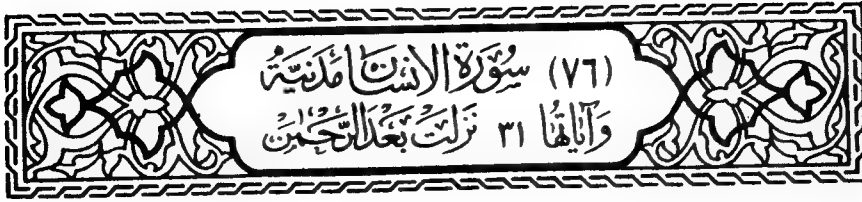 (٧٦) سُورَةُ الْإِنسَانِ مَدَنِيَّةٌ
وَآيَاتُهَا ٣١ نَزَلَتْ بَعْدَ الرَّحْمَٰنِ